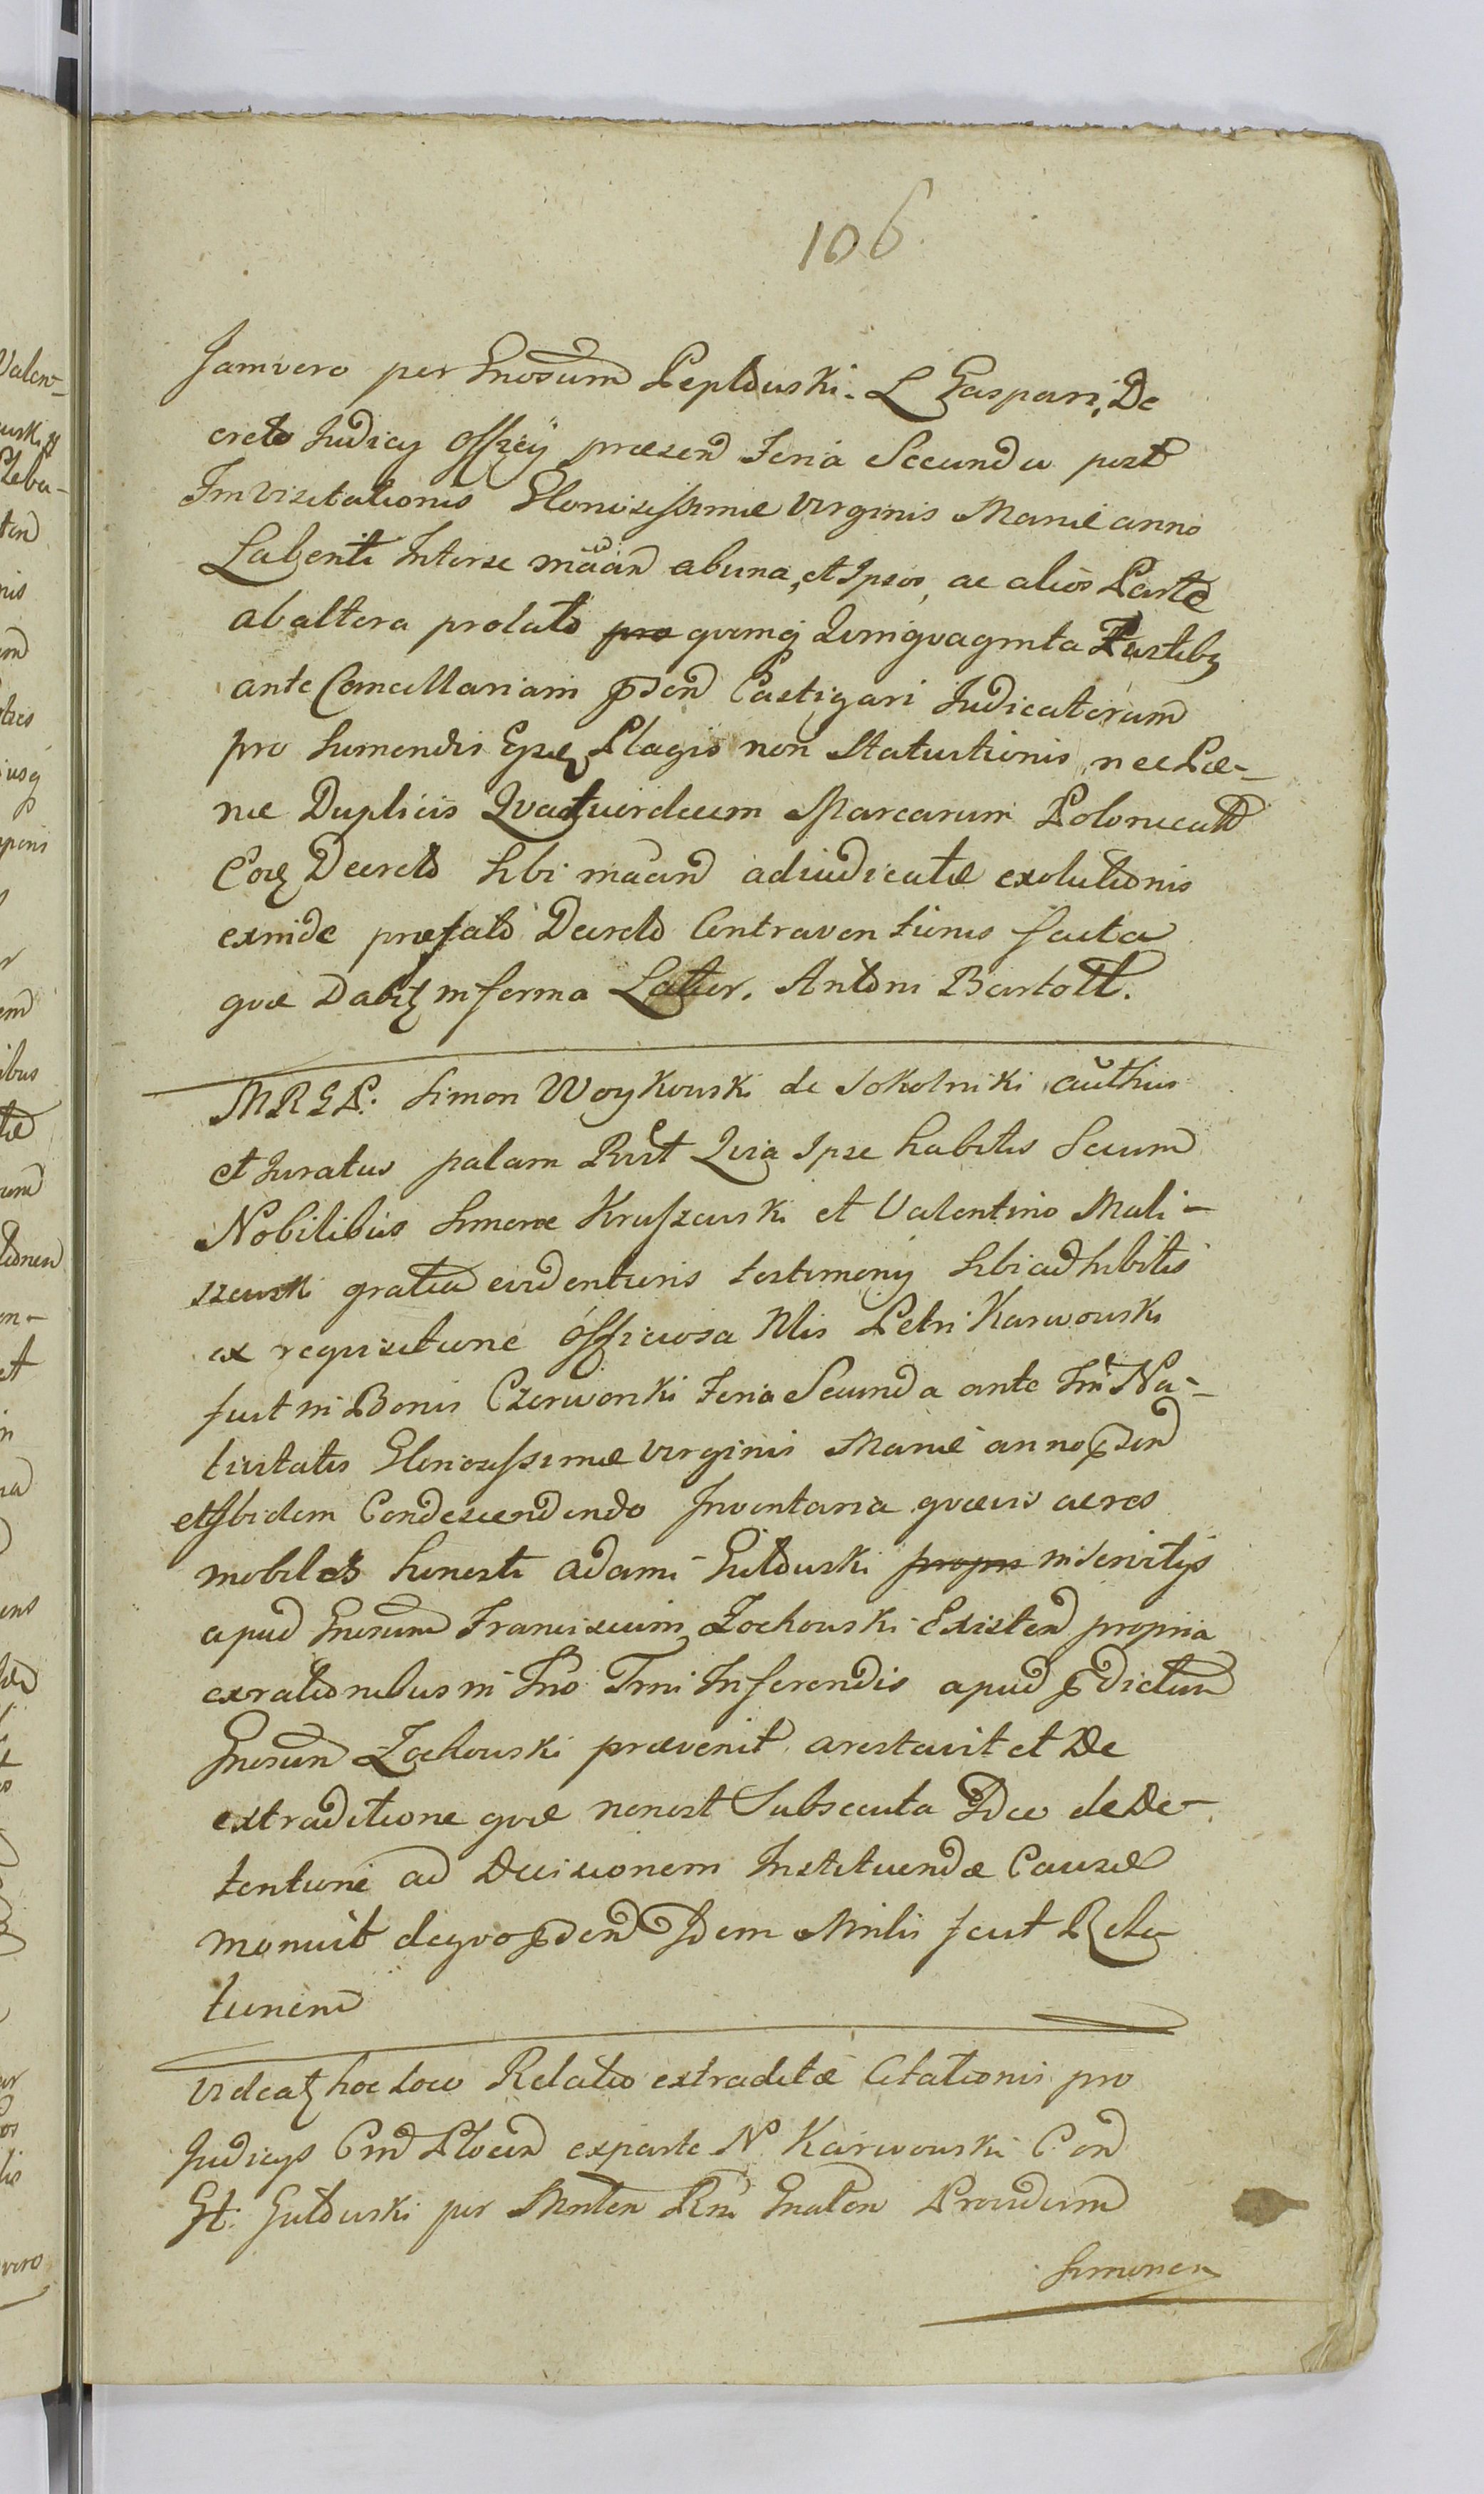 106
Jamvero per Gnosum Leplowski. L Gaspari, De
creto Judicy Officÿ præsen Feria Secunda post
Fm Visitationis Gloriosissimæ Virginis Mariæ anno
Labenti Interse abuna, et Ipsos, ac alios Parte
abaltera prolato pro qvinq Qvinqvaginta Fustibq
ante Cancellariam Castigari Judicatorum
pro sumendis Plagis non Statuitionis, nec Pæ-
næ Duplicis Qvatuordecim Marcarum Polonical
Decreto Sibi adiudicatæ exolutionis
exinde præfato Decreto Contraventionis facta
qvæ Dabitz in forma Later. Antoni Bartolt.
MRGL. Simon Woykowski de Sokolniki authus
et Juratus palam Rvit Qvia Ipse habitis Secum
Nobilibus Simone Kruszewski et Valentino Mali-
szewski gratia evidentioris testimony Sibi adhibitis
ex reqvisitione officiosa Nlis Petri Karwowski
fuit in Bonis Czerwonki Feria Secunda ante Fm Na-
tivitatis Gloriosissimæ Virginis Mariæ anno
et Ibidem Condescendendo Inventaria qvævis ac res
mobiles honesti Adami Gutowski propr in servitys
apud Gnosum Franciscum Zochowski Existen propria
exrationibus in Fno Trni Inferendis apud dictum
Gnosum Zochowski prævenit arestavit et De
extraditione qvæ nonest Subsecuta de De-
tentione ad Decisionem Instituendæ Causæ
monuit deqvo Idem Mnlis fecit Rela
tionem
Videatz hoc Loco Relatio extraditæ Citationis pro
Judicys Ploceñ exparte N. Karwowski Con
H. Gutowski per Mnlen Rni Gnalen Providum
Simonem